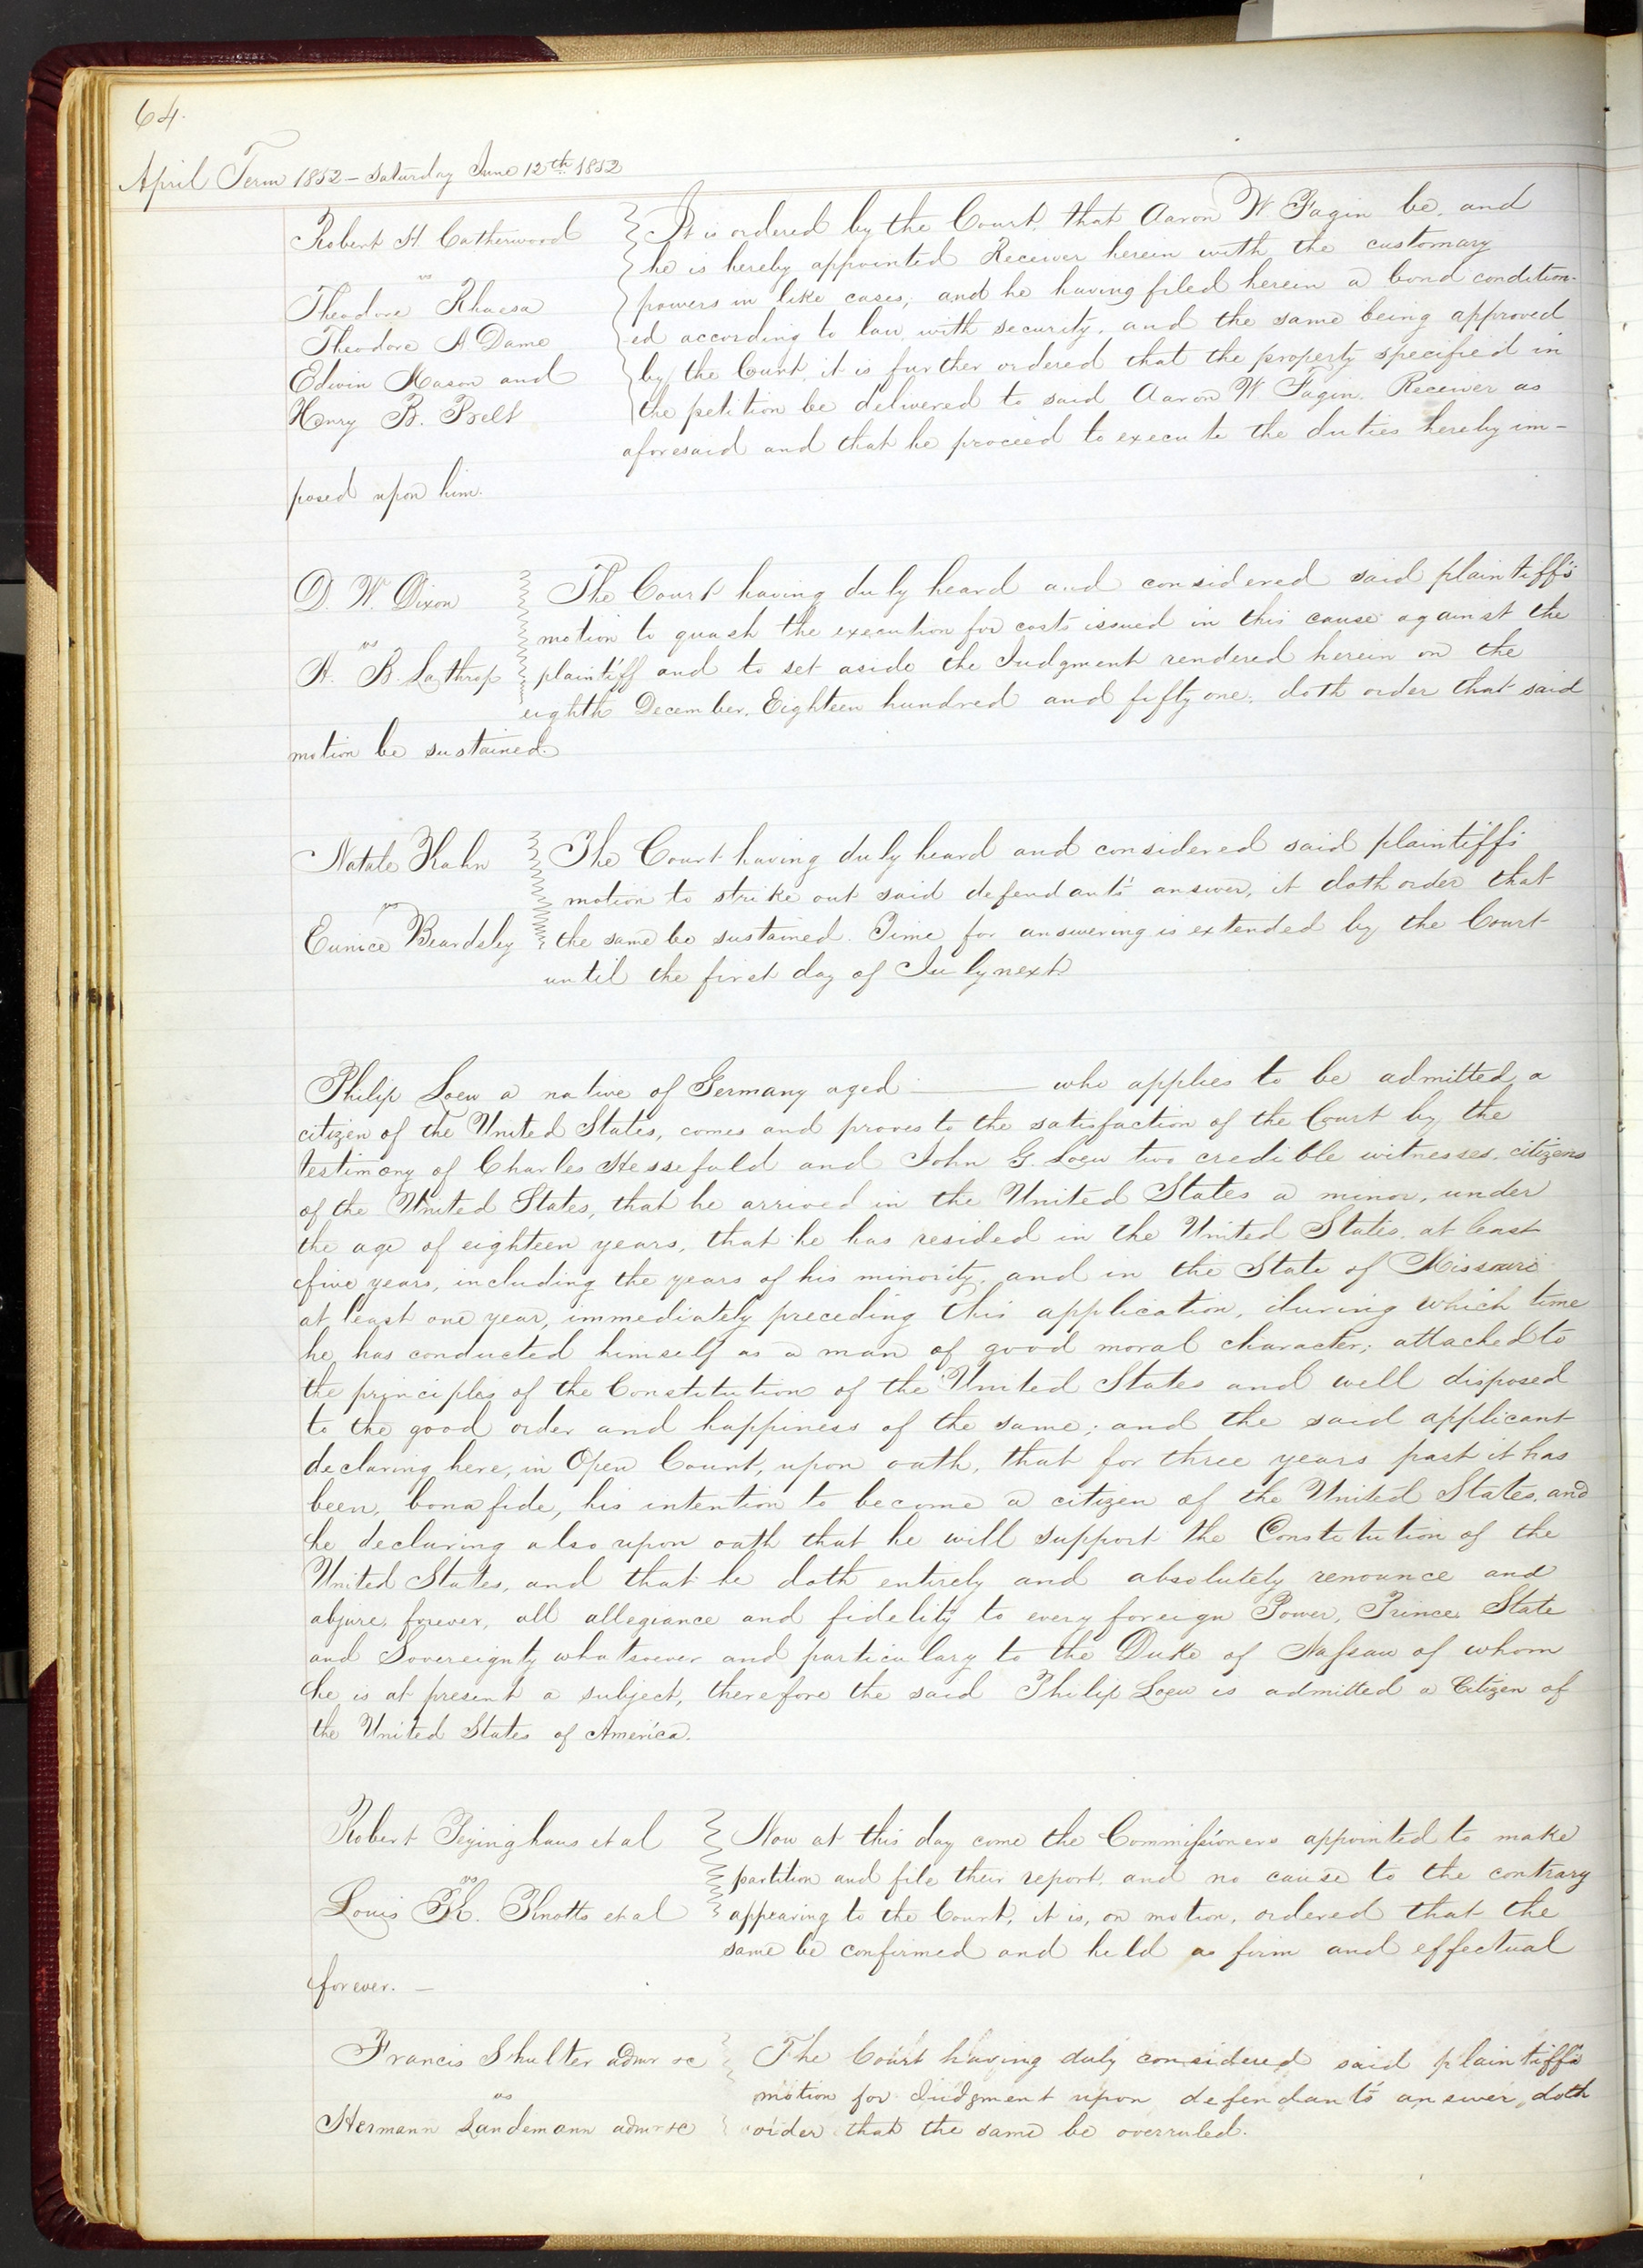 64.
April Term 1852 – Saturday June 12th 1852
Robert H Catherwood
vs
Theodore Rhaesa
Theodore A Dame
Edwin Mason and
Henry B. Belt
It is ordered by the Court, that Aaron W Fagin be, and
he is hereby appointed Receiver herein with the customary
powers in like cases; and he having filed herein a bond condition-
ed according to law with security, and the same being approved
by the Court, it is further ordered that the property specified in
the petition be delivered to said Aaron W Fagin, Receiver as
aforesaid and that he proceed to execute the duties hereby im-
posed upon him.
D. W. Dixon
vs
H. B. Lathrop
The Court having duly heard and considered said plaintiff's
motion to quash the execution for costs issued in this cause against the
plaintiff and to set aside the Judgment rendered herein on the
eighth December, Eighteen hundred and fifty one, doth order that said
motion be sustained.
Natale Kahn
vs
Eunice Beardsley
The Court having duly heard and considered said plaintiff's
motion to strike out said defendant's answer, it doth order that
the same be sustained. Time for answering is extended by the Court
until the first day of July next
Philip Loew a native of Germany aged ——— who applies to be admitted a
citizen of the United States, comes and proves to the satisfaction of the Court by the
testimony of Charles Hessefuld and John G. Loew two credible witnesses, citizens
of the United States, that he arrived in the United States a minor, under
the age of eighteen years, that he has resided in the United States, at least
five years, including the years of his minority, and in the State of Missouri
at least one year, immediately preceding this application, during which time
he has conducted himself as a man of good moral character; attached to
the principles of the Constitution of the United States and well disposed
to the good order and happiness of the same; and the said applicant
declaring here, in Open Court, upon oath, that for three years past it has
been, bona fide, his intention to become a citizen of the United States, and
he declaring also upon oath that he will support the Constitution of the
United States, and that he doth entirely and absolutely renounce and
abjure, forever, all allegiance and fidelity to every foreign Power, Prince, State
and Sovereignty whatsoever and particulary to the Duke of Nassau of whom
he is at present a subject, therefore the said Philip Loew is admitted a Citizen of
the United States of America.
Robert Peyinghaus et al
vs
Louis K. Knotts et al
Now at this day come the Commissioners appointed to make
partition and file their report, and no cause to the contrary
appearing to the Court, it is, on motion, ordered that the
same be confirmed and held as firm and effectual
forever. —
Francis Shulter admr &c
vs
Hermann Landemann admr &c
The Court having duly considered said plaintiff's
motion for Judgment upon defendant's answer, doth
order that the same be overruled.